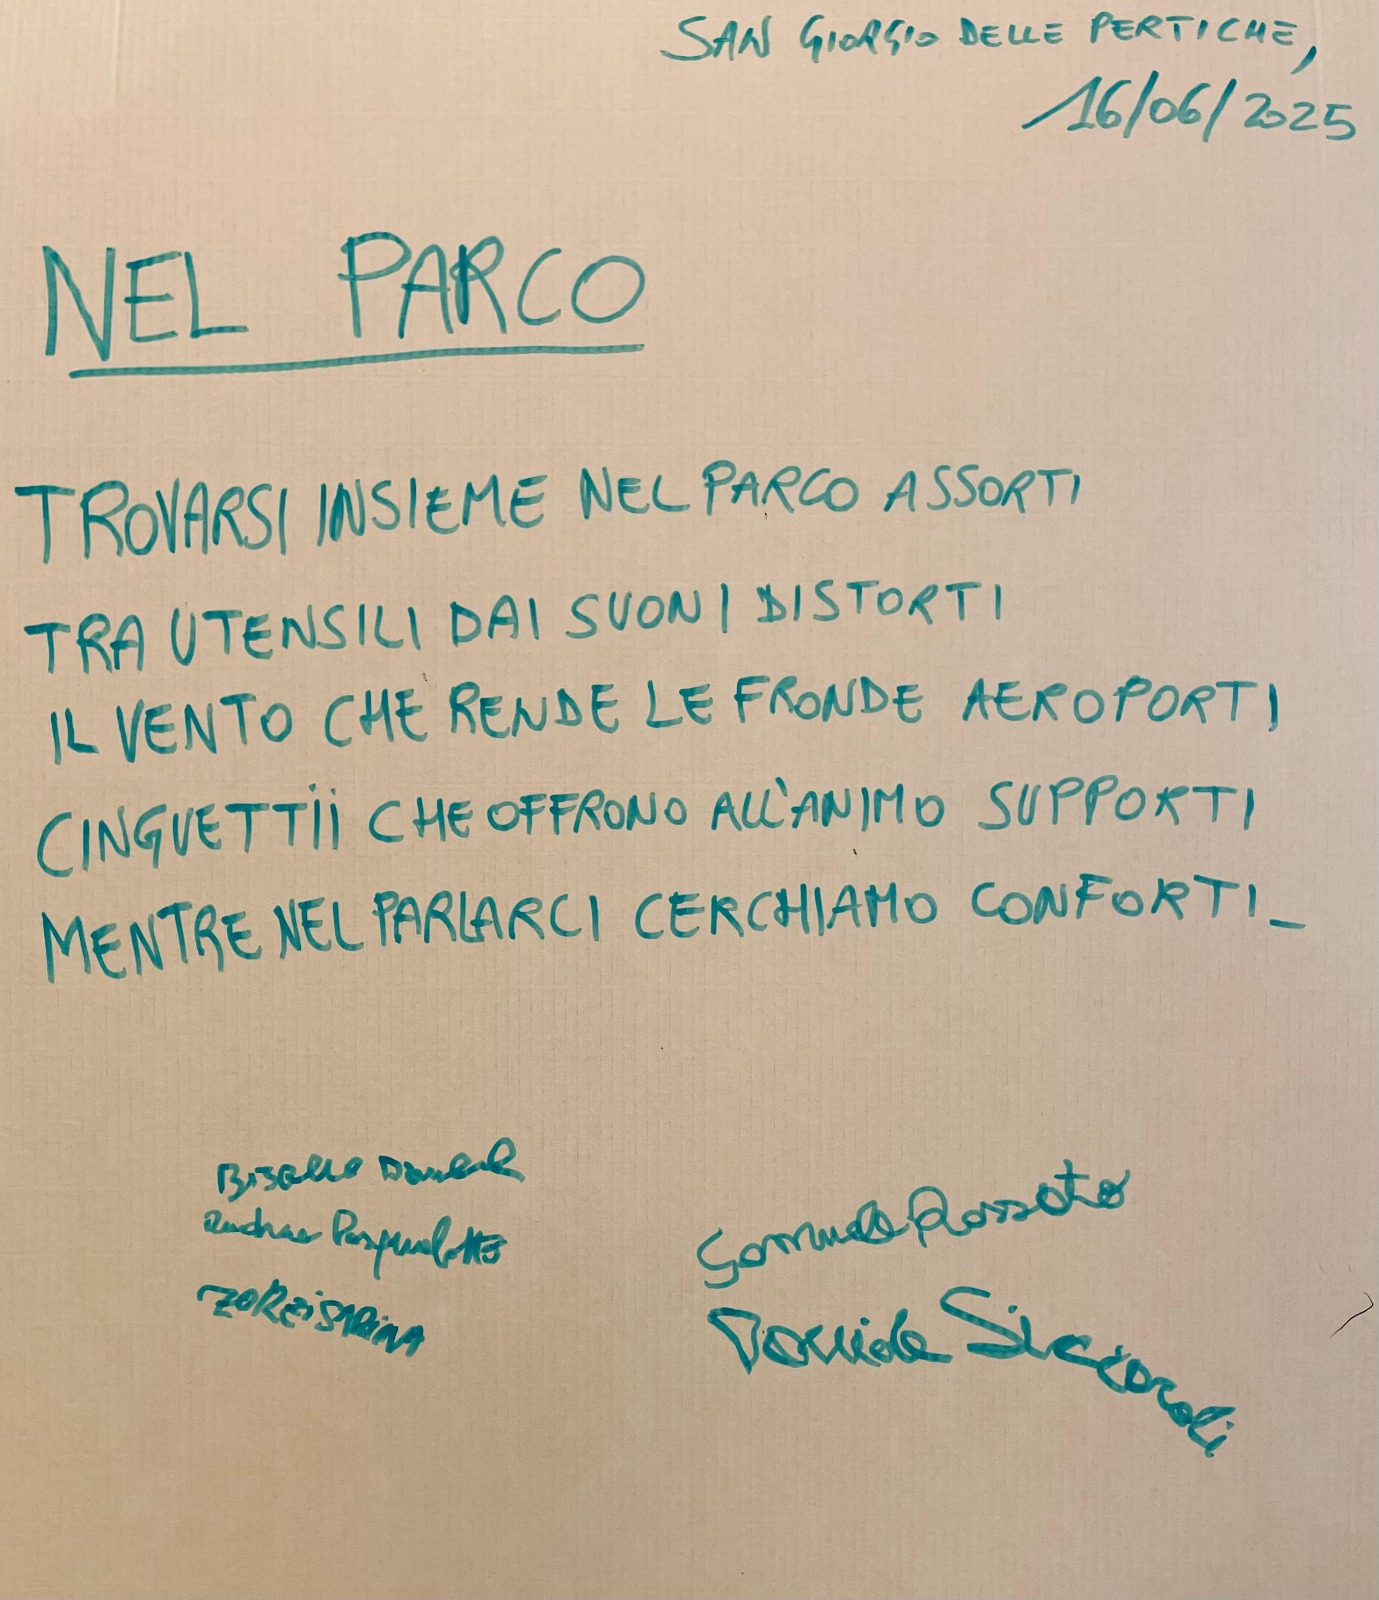 SAN GIORGIO DELLE PERTICHE,
16/06/2025
NEL PARCO
TROVARSI INSIEME NEL PARCO ASSORTI
TRA UTENSILI DAI SUONI DISTORTI
IL VENTO CHE RENDE LE FRONDE AEROPORTI
CINGUETTII CHE OFFRONO ALL'ANIMO SUPPORTI
MENTRE NEL PARLARCI CERCHIAMO CONFORTI_
Andrea Pasqualotto
ZORZI SABINA
Rossato
Davide